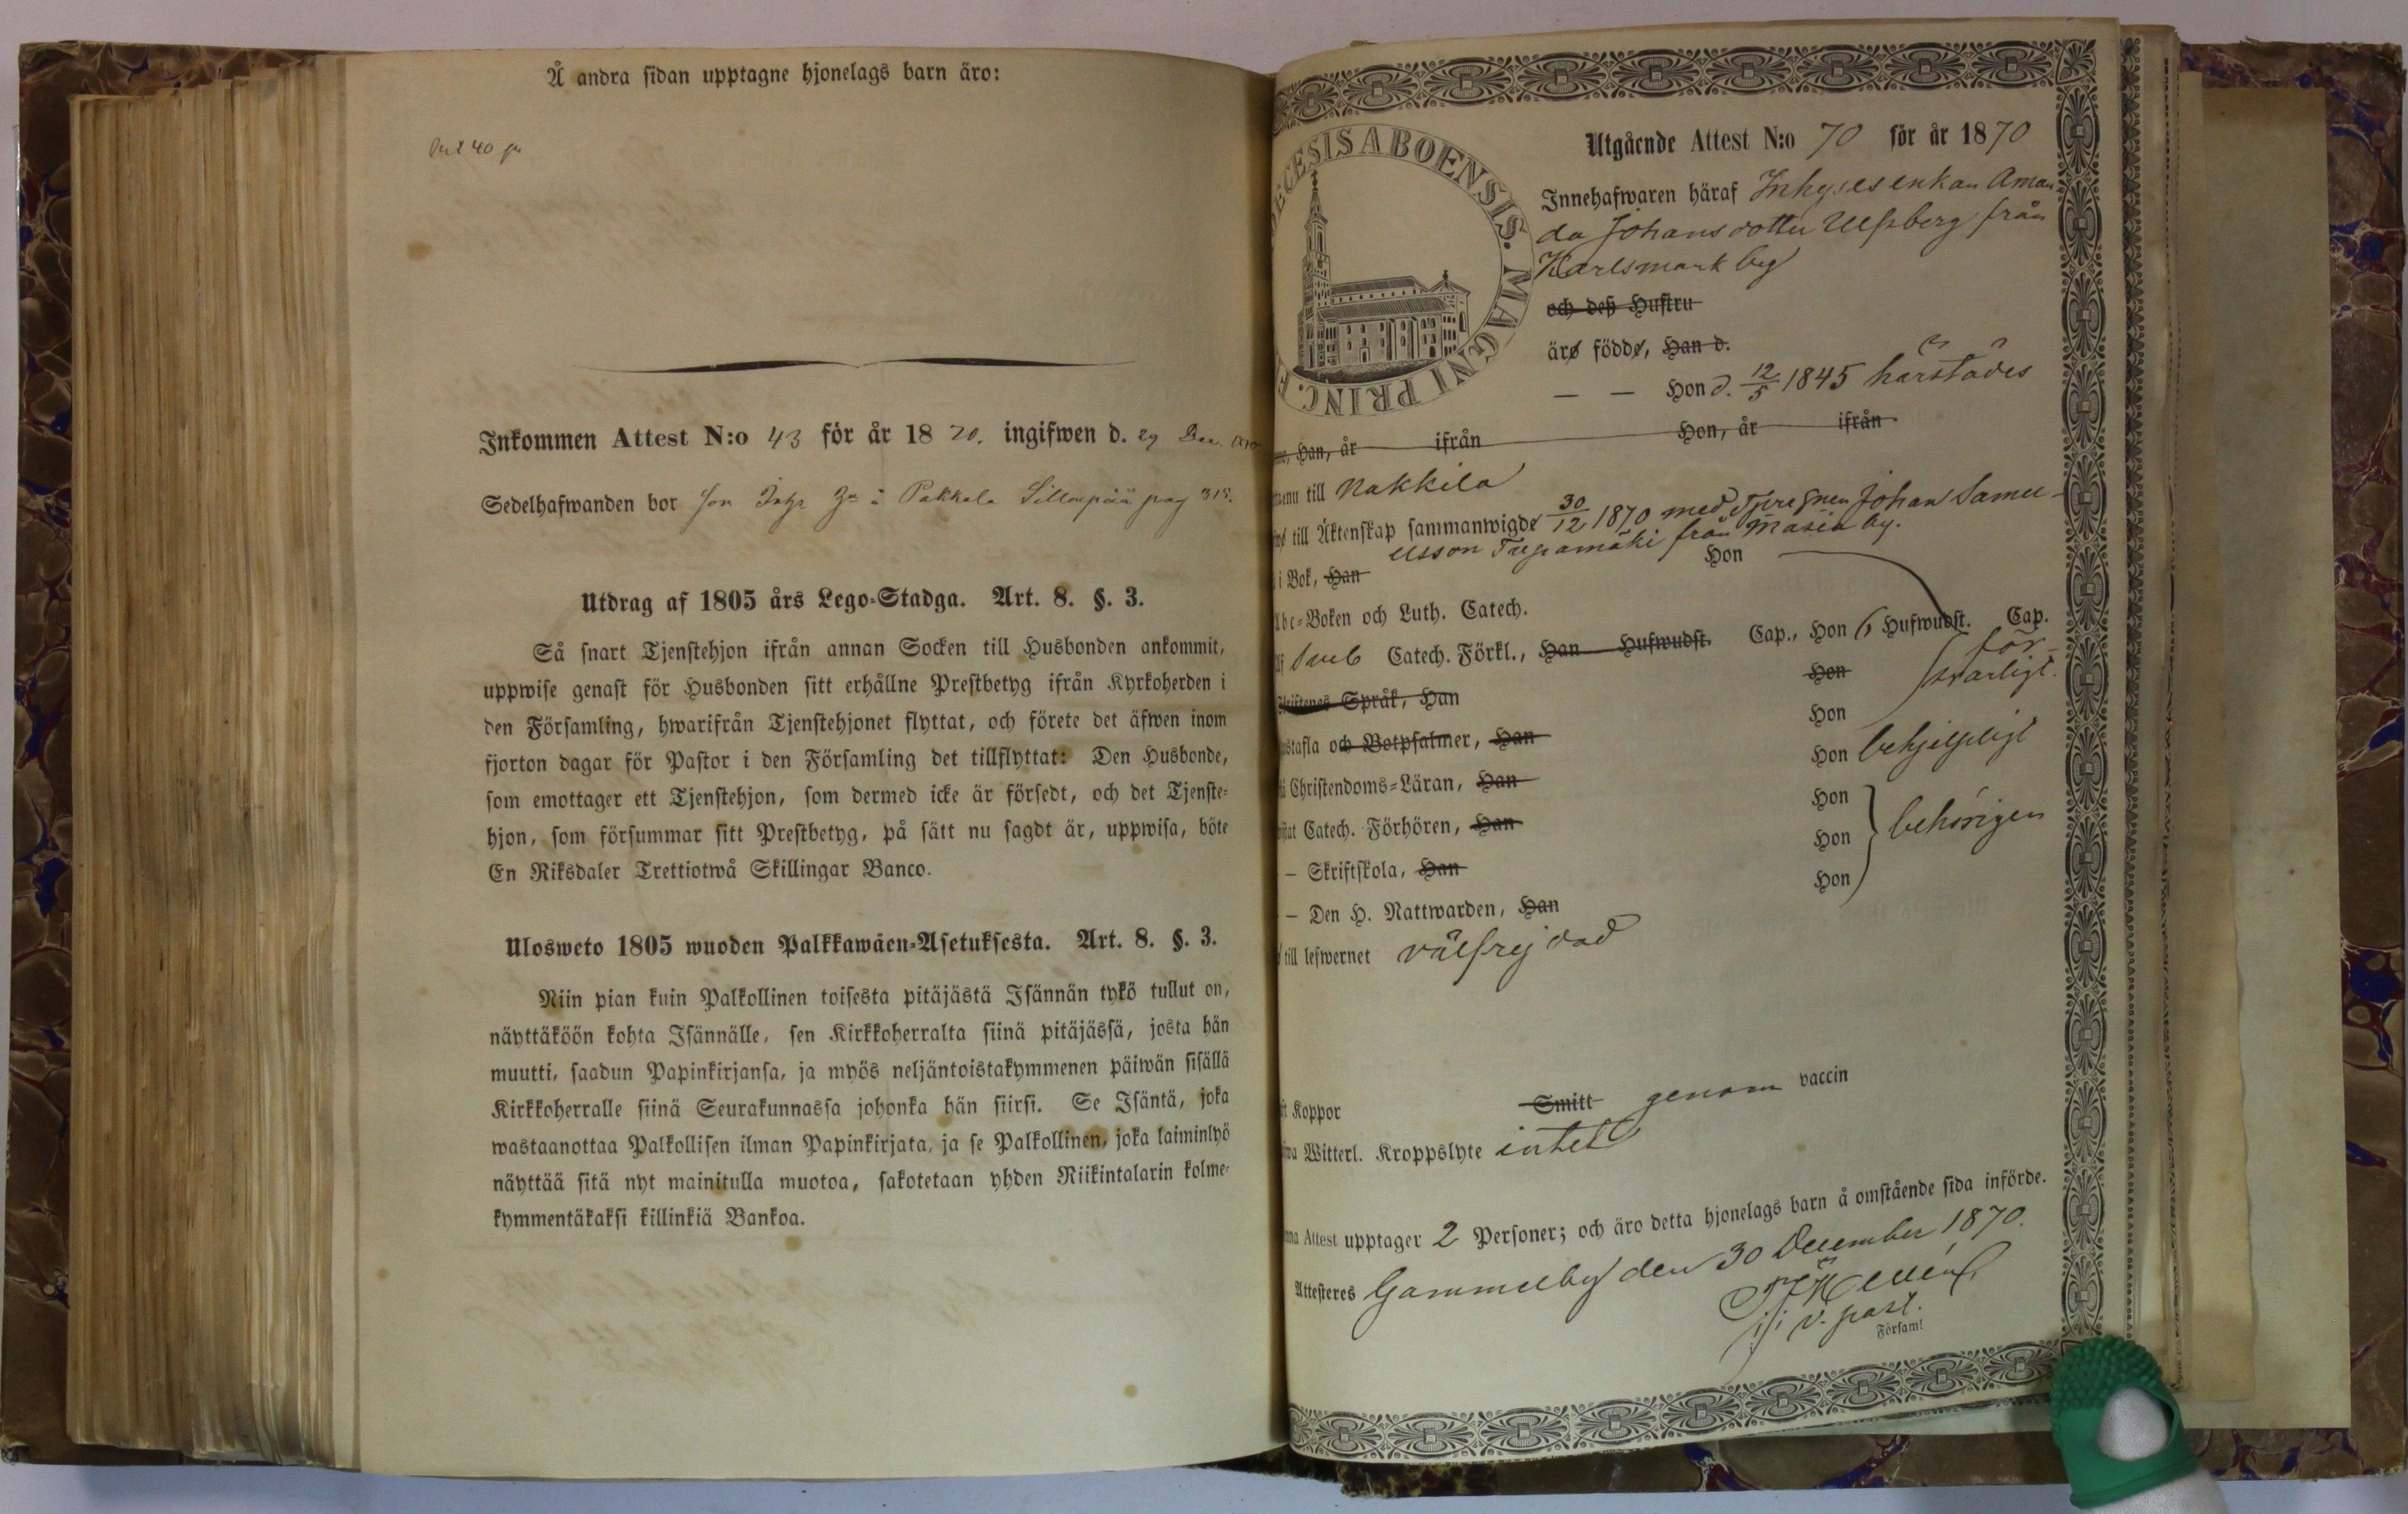 Å andra sidan upptagne hjonelags barn äro:
40
Inkommen Attest N:o 43 för år 18 70. ingifwen d. 29 Dec.
Sedelhafwanden bor Pakkala pag 315.
Utdrag af 1805 års Lego-Stadga. Art. 8. §. 3.
Så snart Tjenstehjon ifrån annan Socken till Husbonden ankommit,
uppwise genast för Husbonden sitt erhållne Prestbetyg ifrån Kyrkoherden i
den Församling, hwarifrån Tjenstehjonet flyttat, och förete det äfwen inom
fjorton dagar för Pastor i den Församling det tillflyttat: Den Husbonde,
som emottager ett Tjenstehjon, som dermed icke är försedt, och det Tjenste-
hjon, som försummar sitt Prestbetyg, på sätt nu sagdt är, uppwisa, böte
En Riksdaler Trettiotwå Skillingar Banco.
Ulosweto 1805 wuoden Palkkawäen-Asetuksesta. Art. 8. §. 3.
Niin pian kuin Palkollinen toisesta pitäjästä Isännän tykö tullut on,
näyttäköön kohta Isännälle, sen Kirkkoherralta siinä pitäjässä, josta hän
muutti, saadun Papinkirjansa, ja myös neljäntoistakymmenen päiwän sisällä
Kirkkoherralle siinä Seurakunnassa johonka hän siirsi. Se Isäntä, joka
wastaanottaa Palkollisen ilman Papinkirjata, ja se Palkollinen, joka laiminlyö
näyttää sitä nyt mainitulla muotoa, sakotetaan yhden Riikintalarin kolme-
kymmentäkaksi killinkiä Bankoa.
ECESIS ABOENSIS. MAGNI PRINC. F
Utgående Attest N:o 70 för år 1870
Innehafwaren häraf Inhyses enkan Aman-
da Johansdotter Ulfsberg från
Karlsmark by
och deß Hustru
äro födde, Han d.
— — Hon d. 12/5 1845 härstädes
Han, år ifrån Hon, år ifrån
till Nakkila
till Äktenskap sammanwigde 30/12 1870 med Johan Samu-
elsson från Masia by.
i Bok, Han Hon
Abc-Boken och Luth. Catech.
Sveb Catech. Förkl., Han Hufwudst. Cap., Hon 6 Hufwudst. Cap.
Språk, Han Hon för-
svarligt.
och Botpsalmer, Han Hon
Christendoms-Läran, Han Hon behjelpligt
Catech. Förhören, Han Hon
— Skriftskola, Han Hon behörigen
— Den H. Nattwarden, Han Hon
till lefwernet välfrejdad
Koppor Smitt genom vaccin
Witterl. Kroppslyte intet
Attest upptager 2 Personer; och äro detta hjonelags barn å omstående sida införde.
Attesteres Gammelby den 30 December 1870.
v. past.
Församl